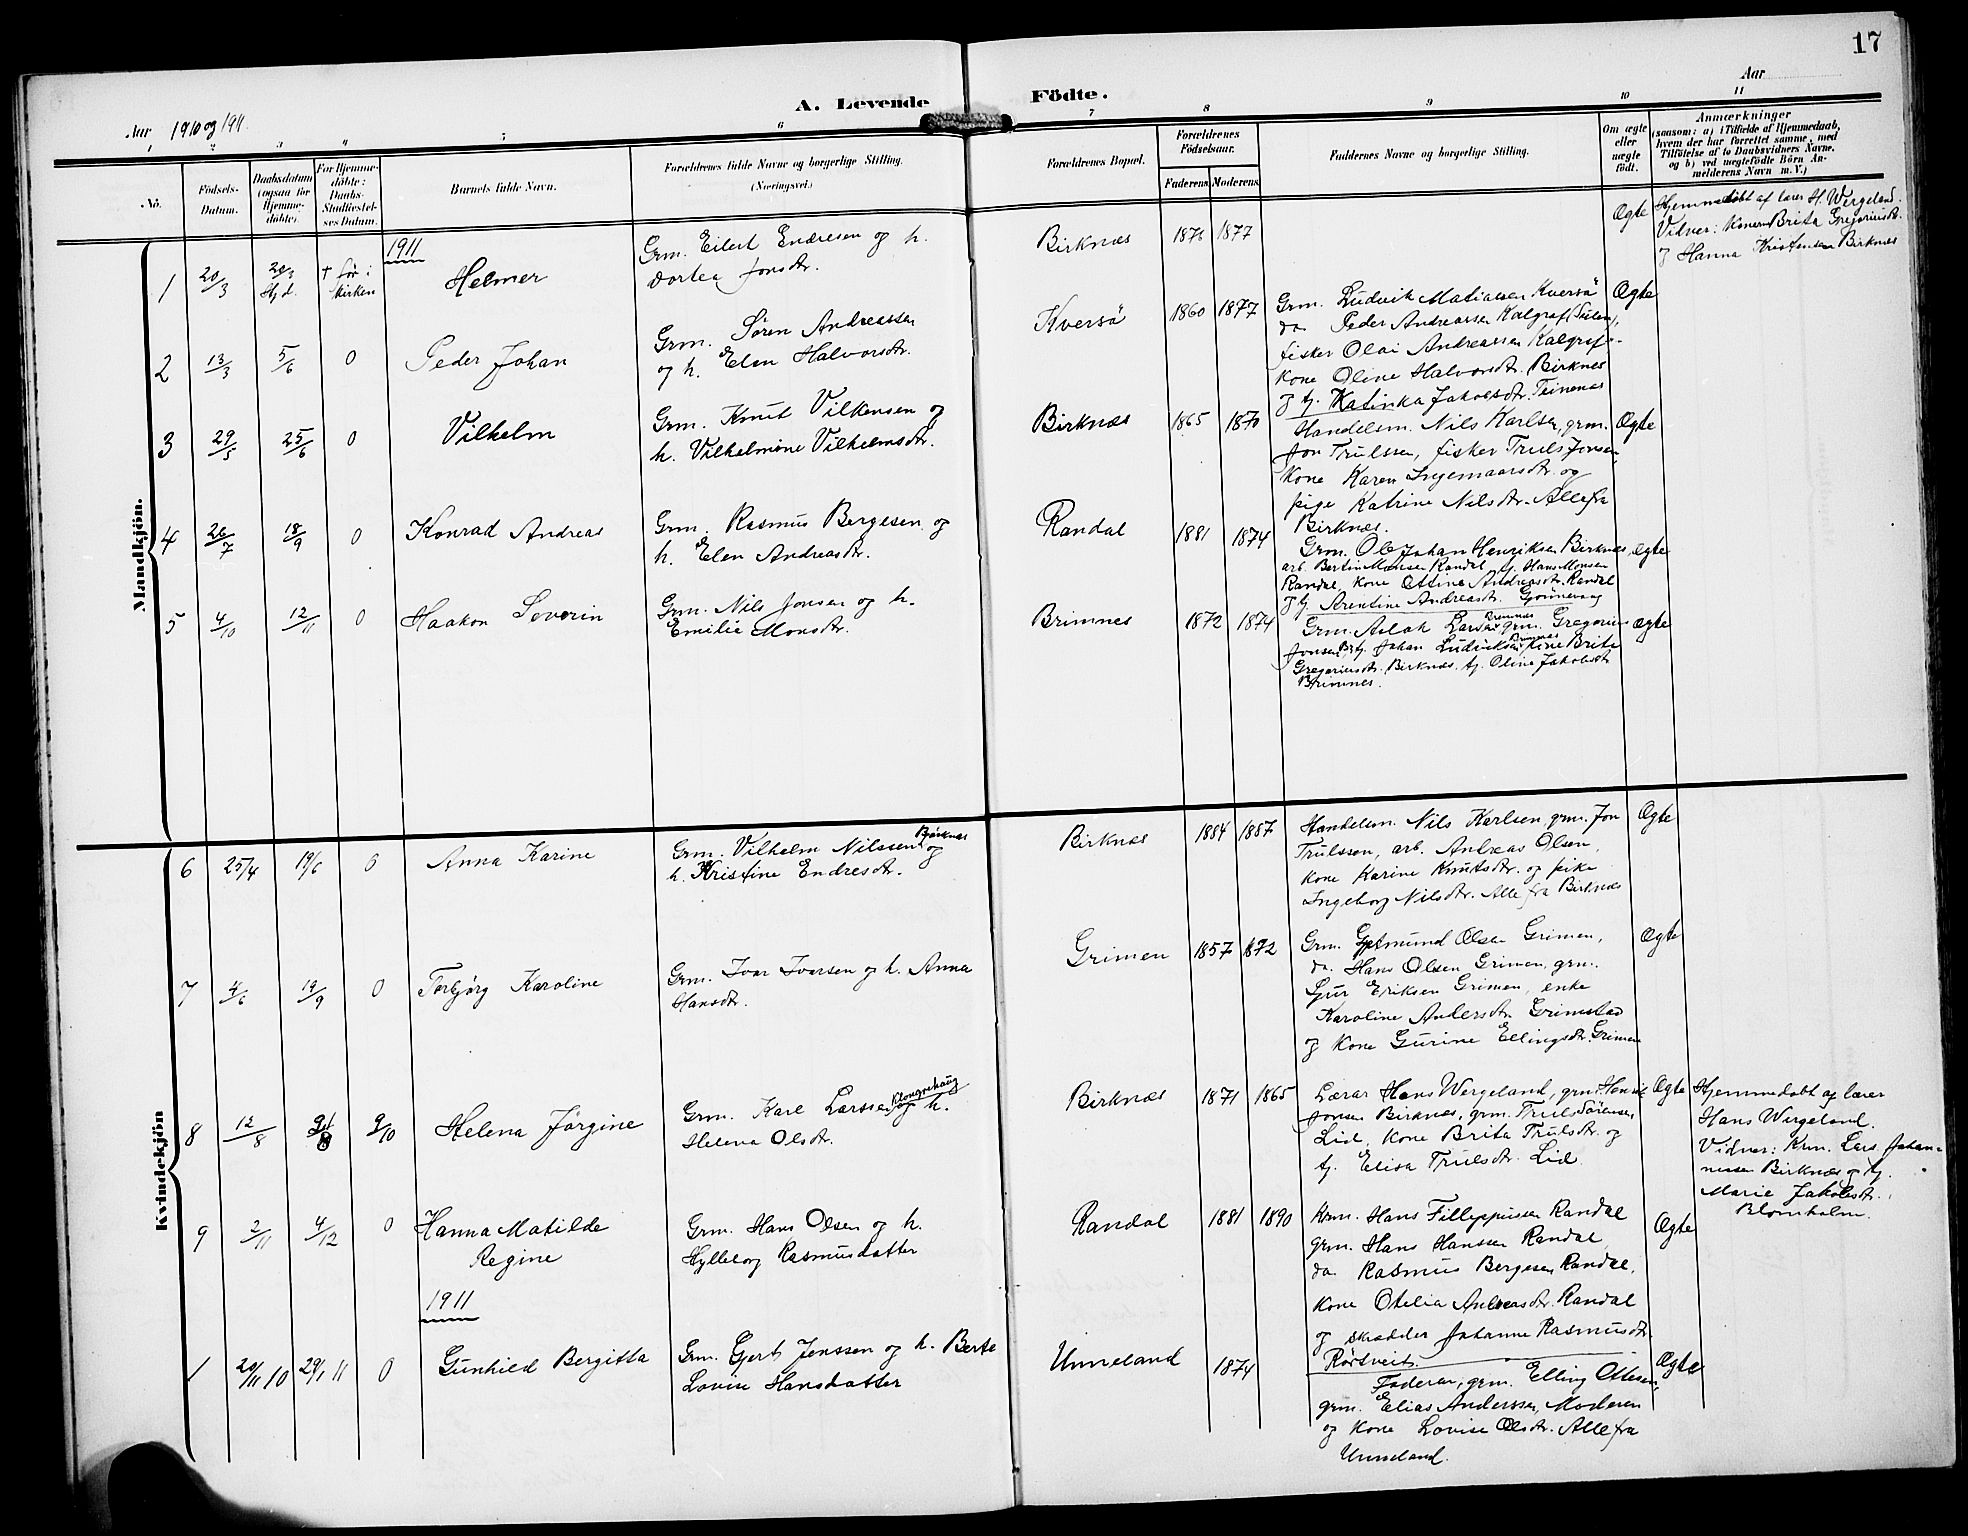 17
Aar 1910 og 1911.
A. Levende Födte.
Aar
1 2 3 4 5 6 7 8 9 10 11
No.
Födsels-Datum.
Daabsdatum (ogsaa for Hjemmedöbte).
For Hjemmedöbte: Daabs-Stadfæstelses Datum.
Barnets fulde Navn.
Forældrenes fulde Navne og borgerlige Stilling. (Næringsvei.)
Forældrenes Bopæl.
Forældrenes Födselsaar.
Faderens
Moderens.
Faddernes Navne og borgerlige Stilling.
Om ægte eller uægte födt.
Anmærkninger
(saasom: a) i Tilfælde af Hjemmedaab,
hvem der har forrettet samme, med
Tilföielse af to Daabsvidners Navne,
og b) ved uægtefödte Börn An-
melderens Navn m. V.)
Mandkjön.
1911
1 20/3 20/3 Hj.d. † før i kirken Helmer
Grm. Eilert Endresen og h.
Dortea Jonsdtr.
Birknæs 1876 1877
Ægte
Hjemmedøbt af lærer H. Wergeland.
Vidner: Konen Brita Gregoriusdtr.
og Hanna Kristensen Birknæs
2 13/3 5/6 0 Peder Johan
Grm. Søren Andreassen
og h. Elen Halvorsdtr.
Kversø 1860 1877
Grm. Ludvik Matiassen Kversø
do Peder Andreassen Kalgraf
fisker Olai Andreassen Kalgraf.
Kone Oline Halvorsdtr. Birknes
og tj. Katinka Jakobsdtr. Teinenæs
Ægte
3 29/5 25/6 0 Vilhelm
Grm. Knut Vilkensen og
h. Vilhelmine Vilhelmsdtr.
Birknæs 1865 1870
Handelsm. Nils Karlsen, grm.
Jon Trulssen, fisker Truls Jonsen,
Kone Karen Ingemaarsdtr. og
pige Katrine Nilsdtr. Alle fra
Birknæs.
Ægte
4 26/7 18/9 0 Konrad Andreas
Grm. Rasmus Bergesen og
h. Elen Andreasdtr.
Randal 1881 1874
Grm. Ole Johan Henriksen Birknæs,
arb. Bertin Monsen Randal, tj. Hans Monsen
Randal, Kone Ottine Andreasdtr. Randal
og tj. Arentine Andreasdtr.
Ægte
5 4/10 12/11 0 Haakon Severin
Grm. Nils Jonsen og h.
Emilie Monsdtr.
Brimnes 1872 1874
Grm. Aslak Larsen Brimnes grm. Gregorius
Jonsen Br. tj. Johan Ludviksen Brimnes, Kone Brita
Gregoriusdtr. Birknæs, tj. Oline Jakobsdtr
Brimnes.
Ægte
Kvindekjön
6 25/4 19/6 0 Anna Karine
Grm. Vilhelm Nilssen Birknæs og
h. Kristine Endresdtr.
Birknæs 1884 1887
Handelsm. Nils Karlsen, grm. Jon
Trulssen, arb. Andreas Olsen,
Kone Karine Knutsdtr. og pike
Ingeborg Nilsdtr. Alle fra Birknæs
Ægte
7 4/6 19/9 0 Torbjørg Karoline
Grm. Ivar Ivarsen og h. Anna
Hansdtr.
Grimen 1857 1872
Grm. Getmund Olsen Grimen,
do. Hans Olsen Grimen, grm.
Sjur Eriksen Grimen, enke
Karoline Andersdtr. Grimstad
og Kone Gurine Ellingsdtr. Grimen
Ægte
8 12/8 21/8 9/10 Helena Jørgine
Grm. Karl Larssen Klongrehaug og h.
Helena Olsdtr.
Birknæs 1871 1865
Lærar Hans Wergeland, grm. Henrik
Jonsen Birknæs, grm. Truls Sørensen
Lid, Kone Brita Trulsdtr. og
tj. Elisa Trulsdtr. Lid.
Ægte
Hjemmedøbt og lærer
Hans Wergeland.
Vidner: Krm. Lars Johan-
nessen Birknæs og tj.
Marie Jakobsdtr.
Blomholm.
9 2/11 4/12 0 Hanna Matilde
Regine
Grm. Hans Olsen og h.
Hylleborg Rasmusdatter
Randal 1881 1890
Krm. Hans Fillippussen Randal
grm. Hans Hanssen Randal,
do. Rasmus Bergesen Randal,
Kone Otelia Andreasdtr. Randal
og skrædder Johanne Rasmusdtr.
Rørtveit.
Ægte
1911
1 20/11 10 29/1 11 0 Gunhild Bergitta
Grm. Gjert Jenssen og h. Berte
Lovise Hansdatter
Unneland 1874
Faderen, grm. Elling Ottesen,
grm. Elias Anderssen, Moderen
og Kone Lovise Olsdtr. Alle fra
Unneland.
Ægte